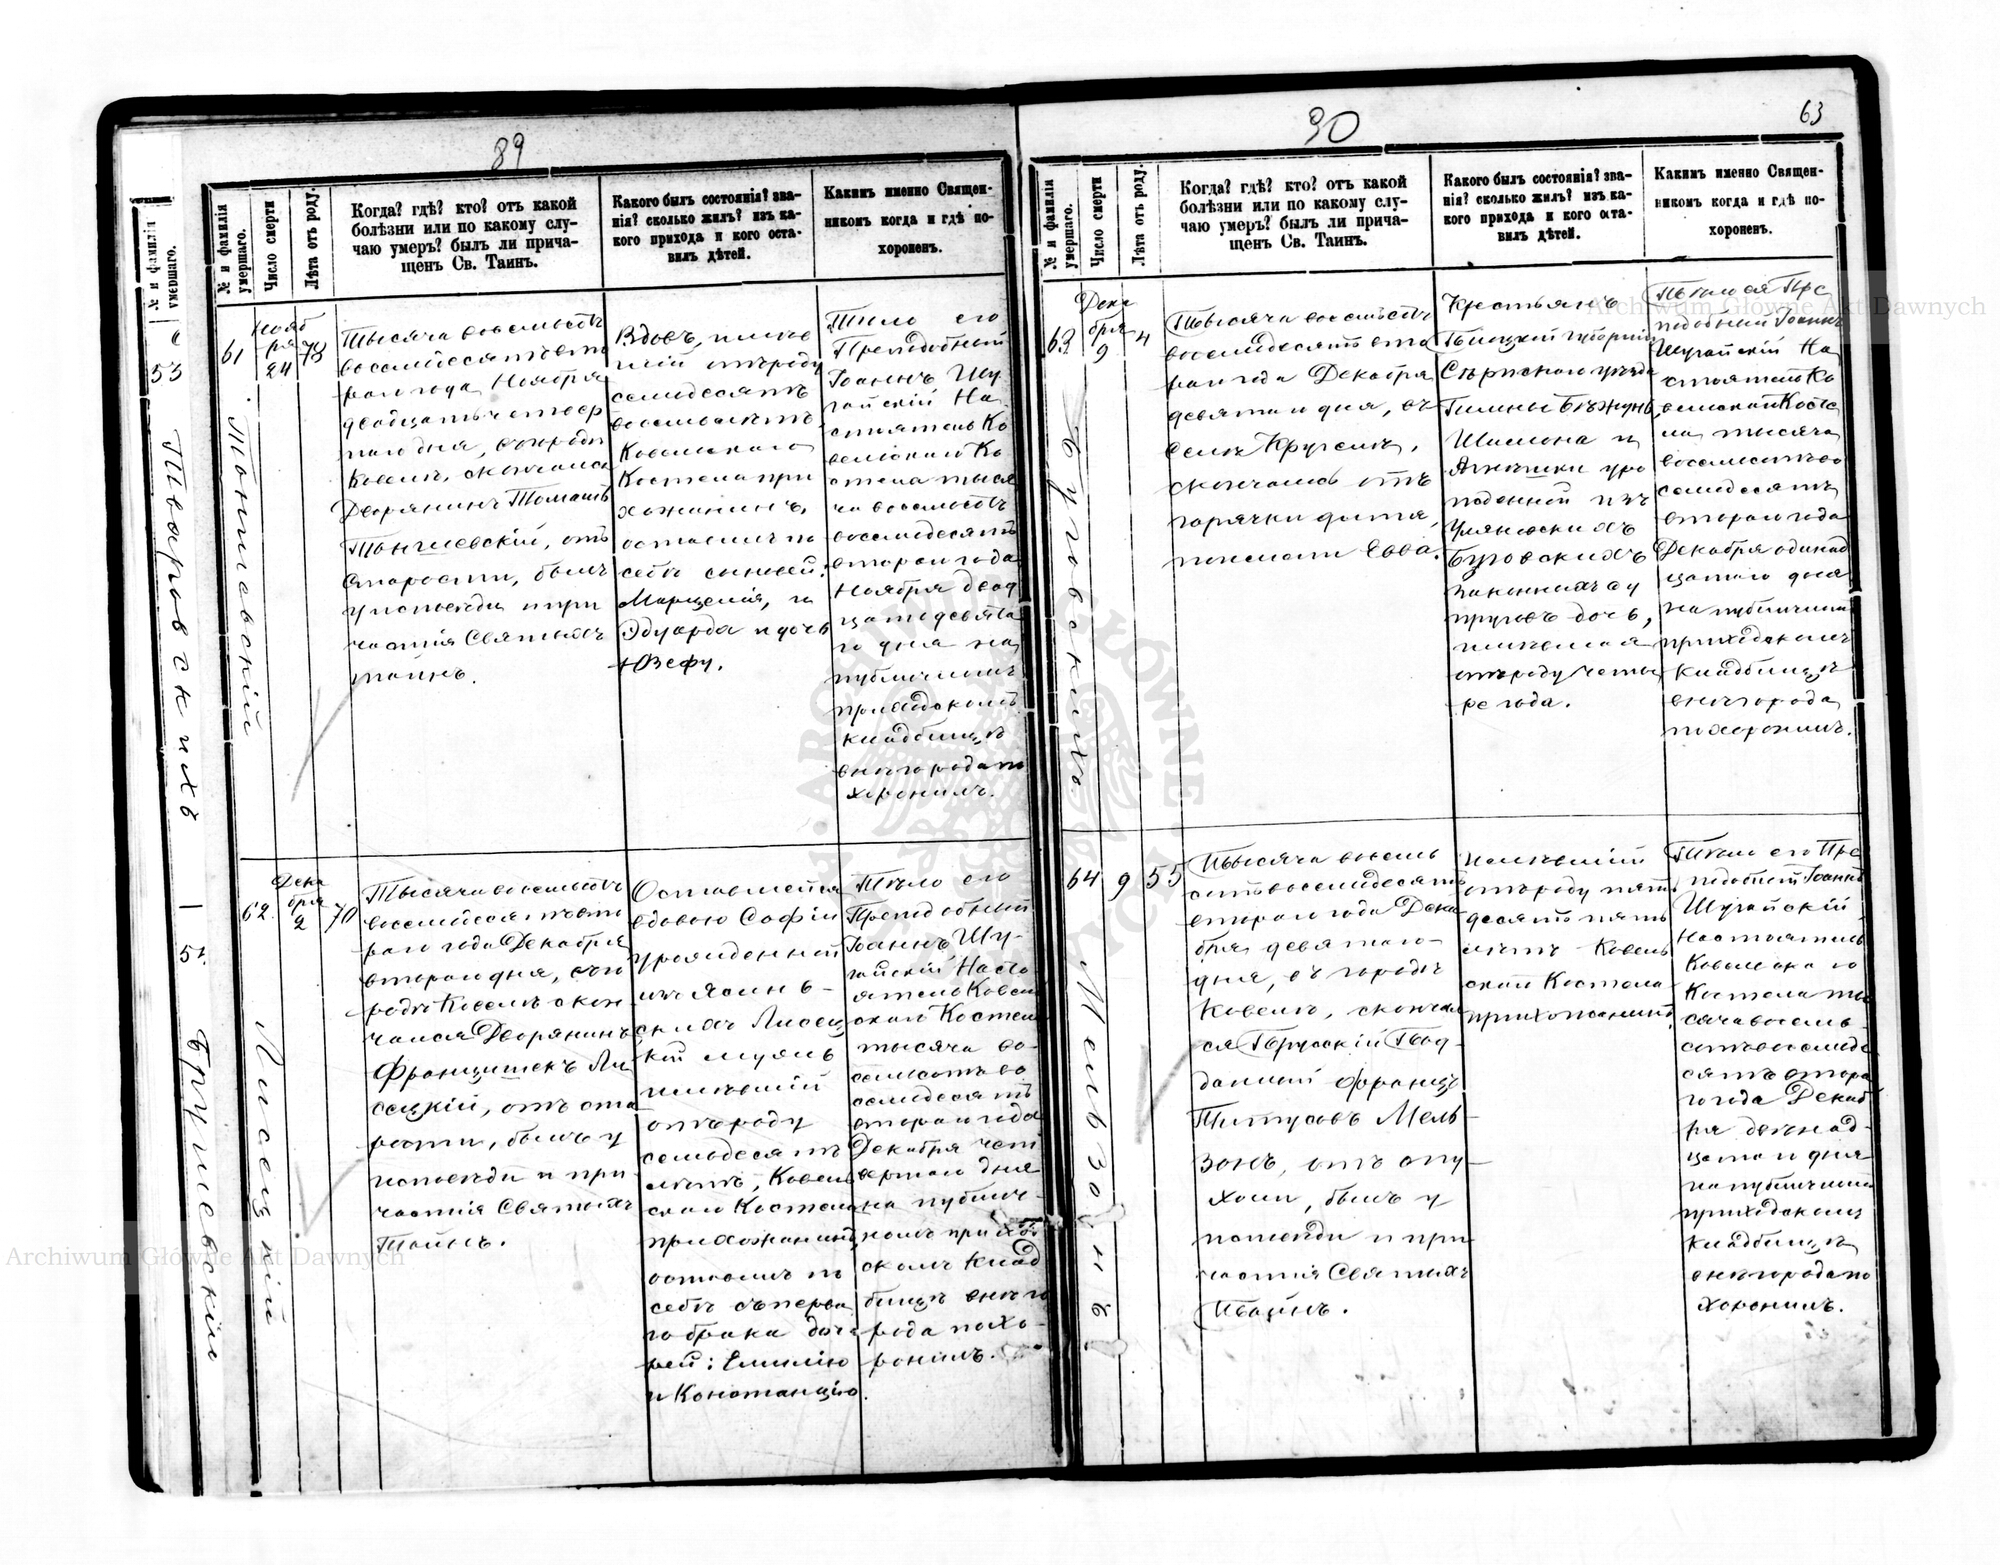 89
№ и фамилія
умершаго.
53
Тваровскихъ
54.
Брушевскій
№ и фамилія
умершаго.
Число смерти
Лѣта отъ роду.
Когда? гдѣ? кто? отъ какой
болѣзни или по какому слу-
чаю умеръ? былъ ли прича-
щенъ Св. Таинъ.
Какого былъ состоянія? зва-
нія? сколько жилъ? изъ ка-
кого прихода и кого оста-
вилъ дѣтей.
Какимъ именно Священ-
никомъ когда и гдѣ по-
хороненъ.
61
Нояб
ря
24
78
Тысяча восемьсотъ
восемдесятъ вто
раго года Ноября
двадцать четвер
таго дня, въ городѣ
Ковелѣ, скончался
Дворянинъ Томашъ
старости, былъ
у исповѣди и при
частія Святыхъ
тайнъ.
Вдовъ, имѣв
шій отъ роду
семдесятъ
восемь лѣтъ
Ковельскаго
Костела при
хожанинъ,
оставилъ по
себѣ сыновей:
Марцелія, и
Эдуарда и дочь
Юзефу.
Тѣло его
Преподобный
Іоаннъ Шу-
гайскій На-
стоятель Ко
вельскаго Ко
стела тыся
ча восемьсотъ
восемдесятъ
втораго года
Ноября двад
цать девята
го дня на
публичномъ
приходскомъ
кладбищѣ
внѣ города по
хоронилъ.
62.
Дека
бря
2
70
Лисецкій
Тысяча восемьсотъ
восемдесятъ вто
раго года Декабря
втораго дня, въ го
родѣ Ковелѣ скон
чался Дворянинъ
Францишекъ Ли
сецкій, отъ ста
рости, былъ у
исповѣди и при
частія Святыхъ
Тайнъ.
Оставшейся
вдовою Софіи
урожденной
изъ Ясинь-
скихъ Лисец
кой мужъ
имѣвшій
отъ роду
семьдесятъ
лѣтъ, Ковель
скаго Костела
прихожанинъ,
оставилъ по
себѣ съ перва
го брака доче
рей: Емилію
и Констанцію.
Тѣло его
Преподобный
Іоаннъ Шу-
гайскій Насто
ятель Ковель
скаго Костела
тысяча во-
семьсотъ во
семдесятъ
втораго года
Декабря чет
вертаго дня
на публич-
номъ приход
скомъ клад
бищѣ внѣ го
рода похо-
ронилъ.
90
63
№ и фамилія
умершаго.
Число смерти
Лѣта отъ роду.
Когда? гдѣ? кто? отъ какой
болѣзни или по какому слу-
чаю умеръ? былъ ли прича-
щенъ Св. Таинъ.
Какого былъ состоянія? зва-
нія? сколько жилъ? изъ ка-
кого прихода и кого оста-
вилъ дѣтей.
Какимъ именно Священ-
никомъ когда и гдѣ по-
хороненъ.
63.
Дека
бря
9
4
Тысяча восемьсотъ
восемдесятъ вто
раго года Декабря
девятаго дня, въ
скончалась отъ
горячки дитя,
по имени Евва.
Крестьянъ
губерніи
уѣзда
Гмины Бѣжунь
Шимона и
Агнѣшки уро
жденной изъ
Ульяновскихъ
Буговскихъ
законныхъ су
пруговъ дочь,
имѣвшая
отъ роду четы
ре года.
Тѣло ея Пре
подобный Іоаннъ
Шугайскій На
стоятель Ко
вельскаго Косте
ла тысяча
восемьсотъ во
семдесятъ
втораго года
Декабря одинад
цатаго дня
на публичномъ
приходскомъ
кладбищѣ
внѣ города
похоронилъ.
64
9
55
Мельзонъ
Тысяча восемь
сотъ восемдесятъ
втораго года Дека
бря девятаго
дня, въ городѣ
Ковелѣ, скончал
ся Прусскій Под-
данный Францъ
Титусовъ Мель-
зонъ, отъ опу-
холи, былъ у
исповѣди и при
частія Святыхъ
Тайнъ.
имѣвшій
отъ роду пять
десятъ пять
лѣтъ Ковель
скаго Костела
прихожанинъ.
Тѣло его Пре
подобный Іоаннъ
Шугайскій
Настоятель
Ковельскаго
Костела ты
сяча восемь-
сотъ восемде
сятъ втора
го года Декаб
ря двѣнад-
цатаго дня
на публичномъ
приходскомъ
кладбищѣ
внѣ города по
хоронилъ.
Archiwum Główne Akt Dawnych
Archiwum Główne Akt Dawnych